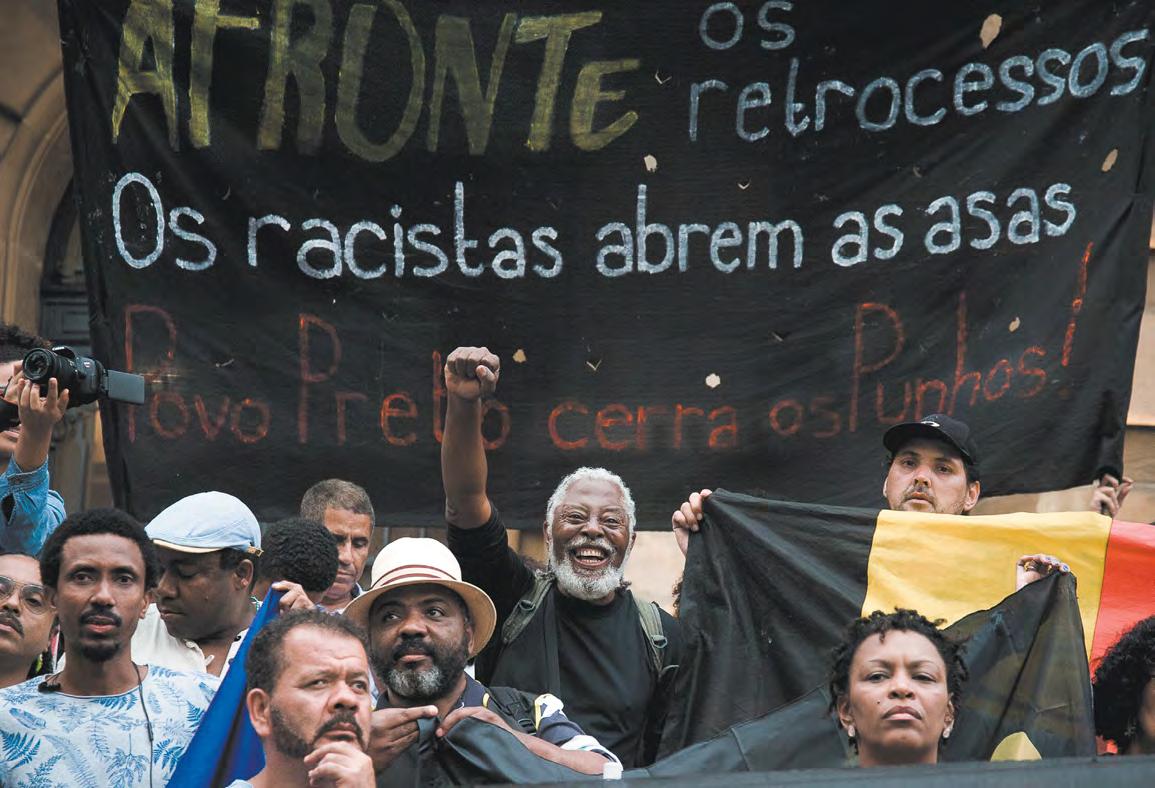 AFRONTE os
retrocessos
Os racistas abrem as asas
Povo Preto cerra os Punhos!